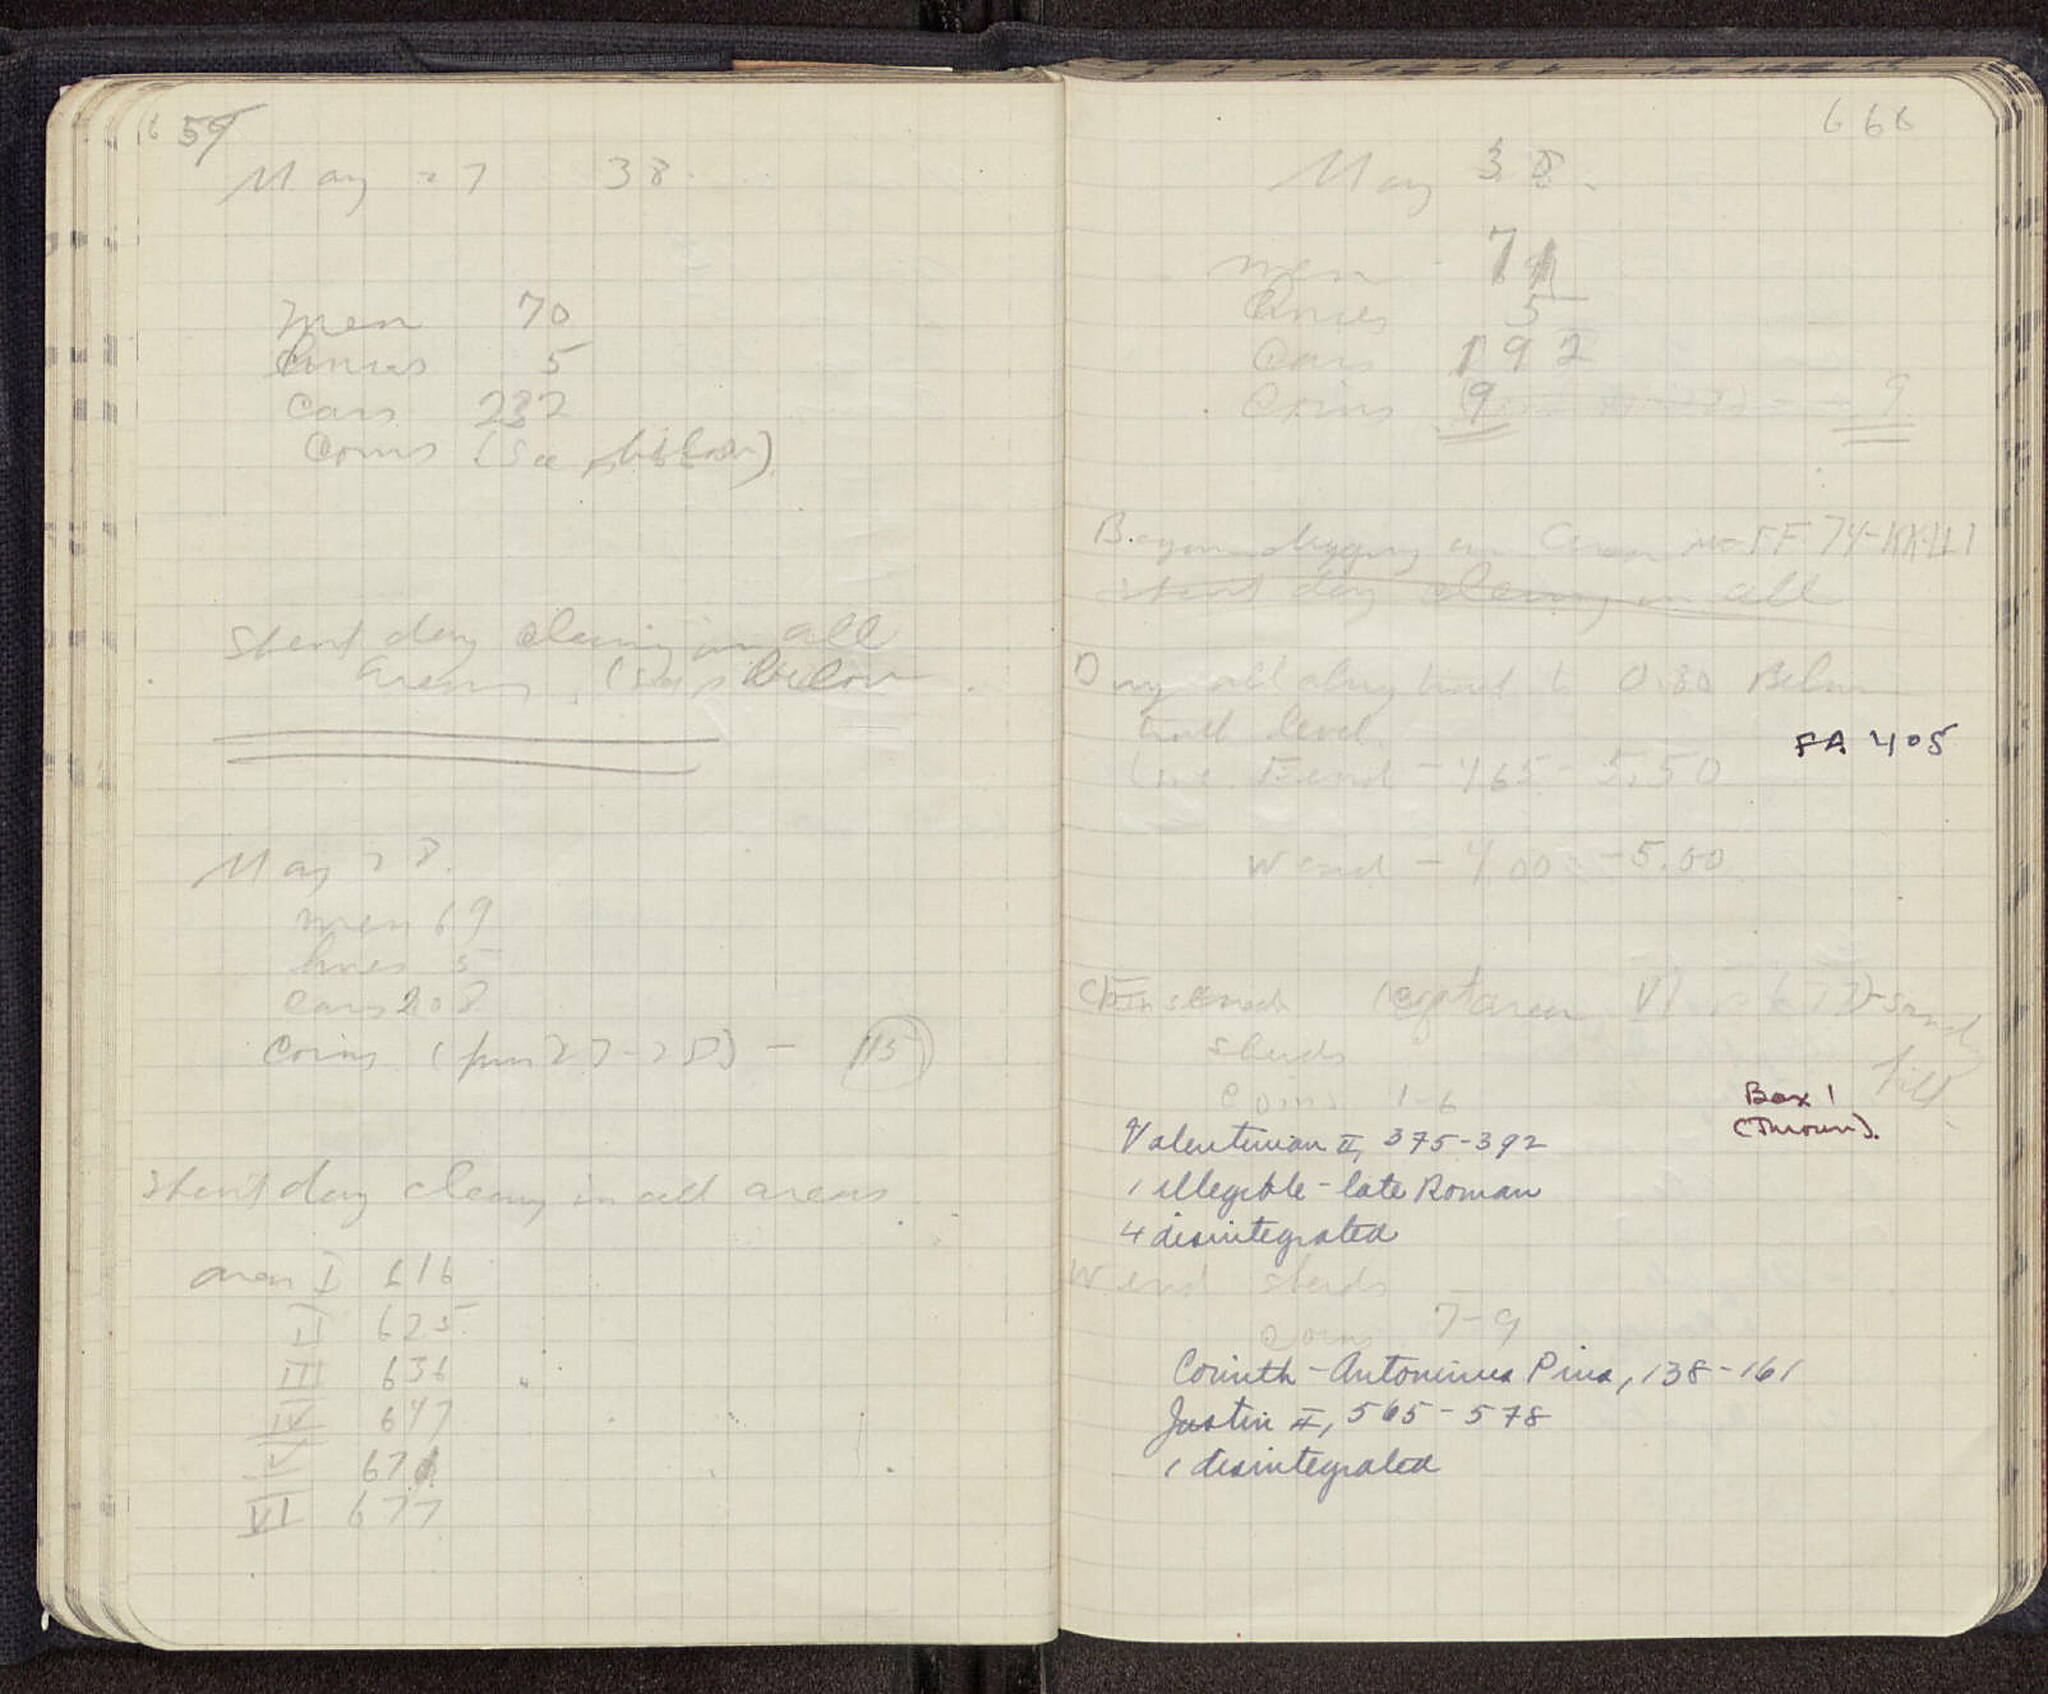 659
May 27 38
Men 70
Cars 232
Coins (See below)
Spent day cleaning in all
areas, below
May 28.
men 69
5
Cars 208
Coins (from 27-28) - 15
Spent day cleaning in all areas
area I 616
II 625
III 636
IV 647
V 671
VI 677
666
May 38.
men 71
5
Cars 192
Coins 9 9
Began digging in area
Spent day cleaning in all
Dug all along to 0.80 Below
level
FA 405
E end - 4.65 - 5.50
W end - 4.00 - 5.00
area VI sand
fill
sherds
Coins 1-6
Box 1
(Thrown).
Valentinian II, 375-392
1 illegible - late Roman
4 disintegrated
W end sherds
Coins 7-9
Corinth - Antoninus Pius, 138-161
Justin II, 565-578
1 disintegrated